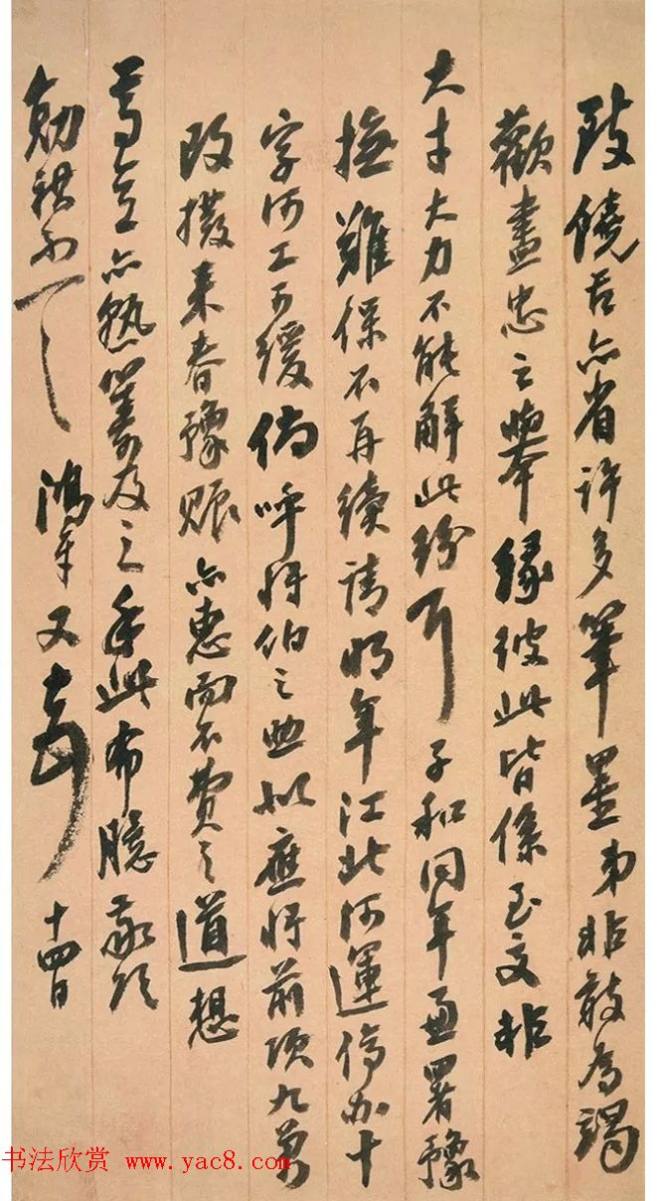 致饒舌亦省許多筆墨弟非敢為竭
歡盡忠之舉緣彼此皆係至交非
大才大力不能解此紛耳子和同年兼署豫
撫難保不再續請明年江北河運停辦十
字河工可緩倘呼將伯之助擬應將前項九萬
改撥來春豫賑亦惠而不費之道想
尊意亦熟籌及之手此布臆敬頌
勛祺不一 鴻章又 十四日
书法欣赏 www.yac8.com